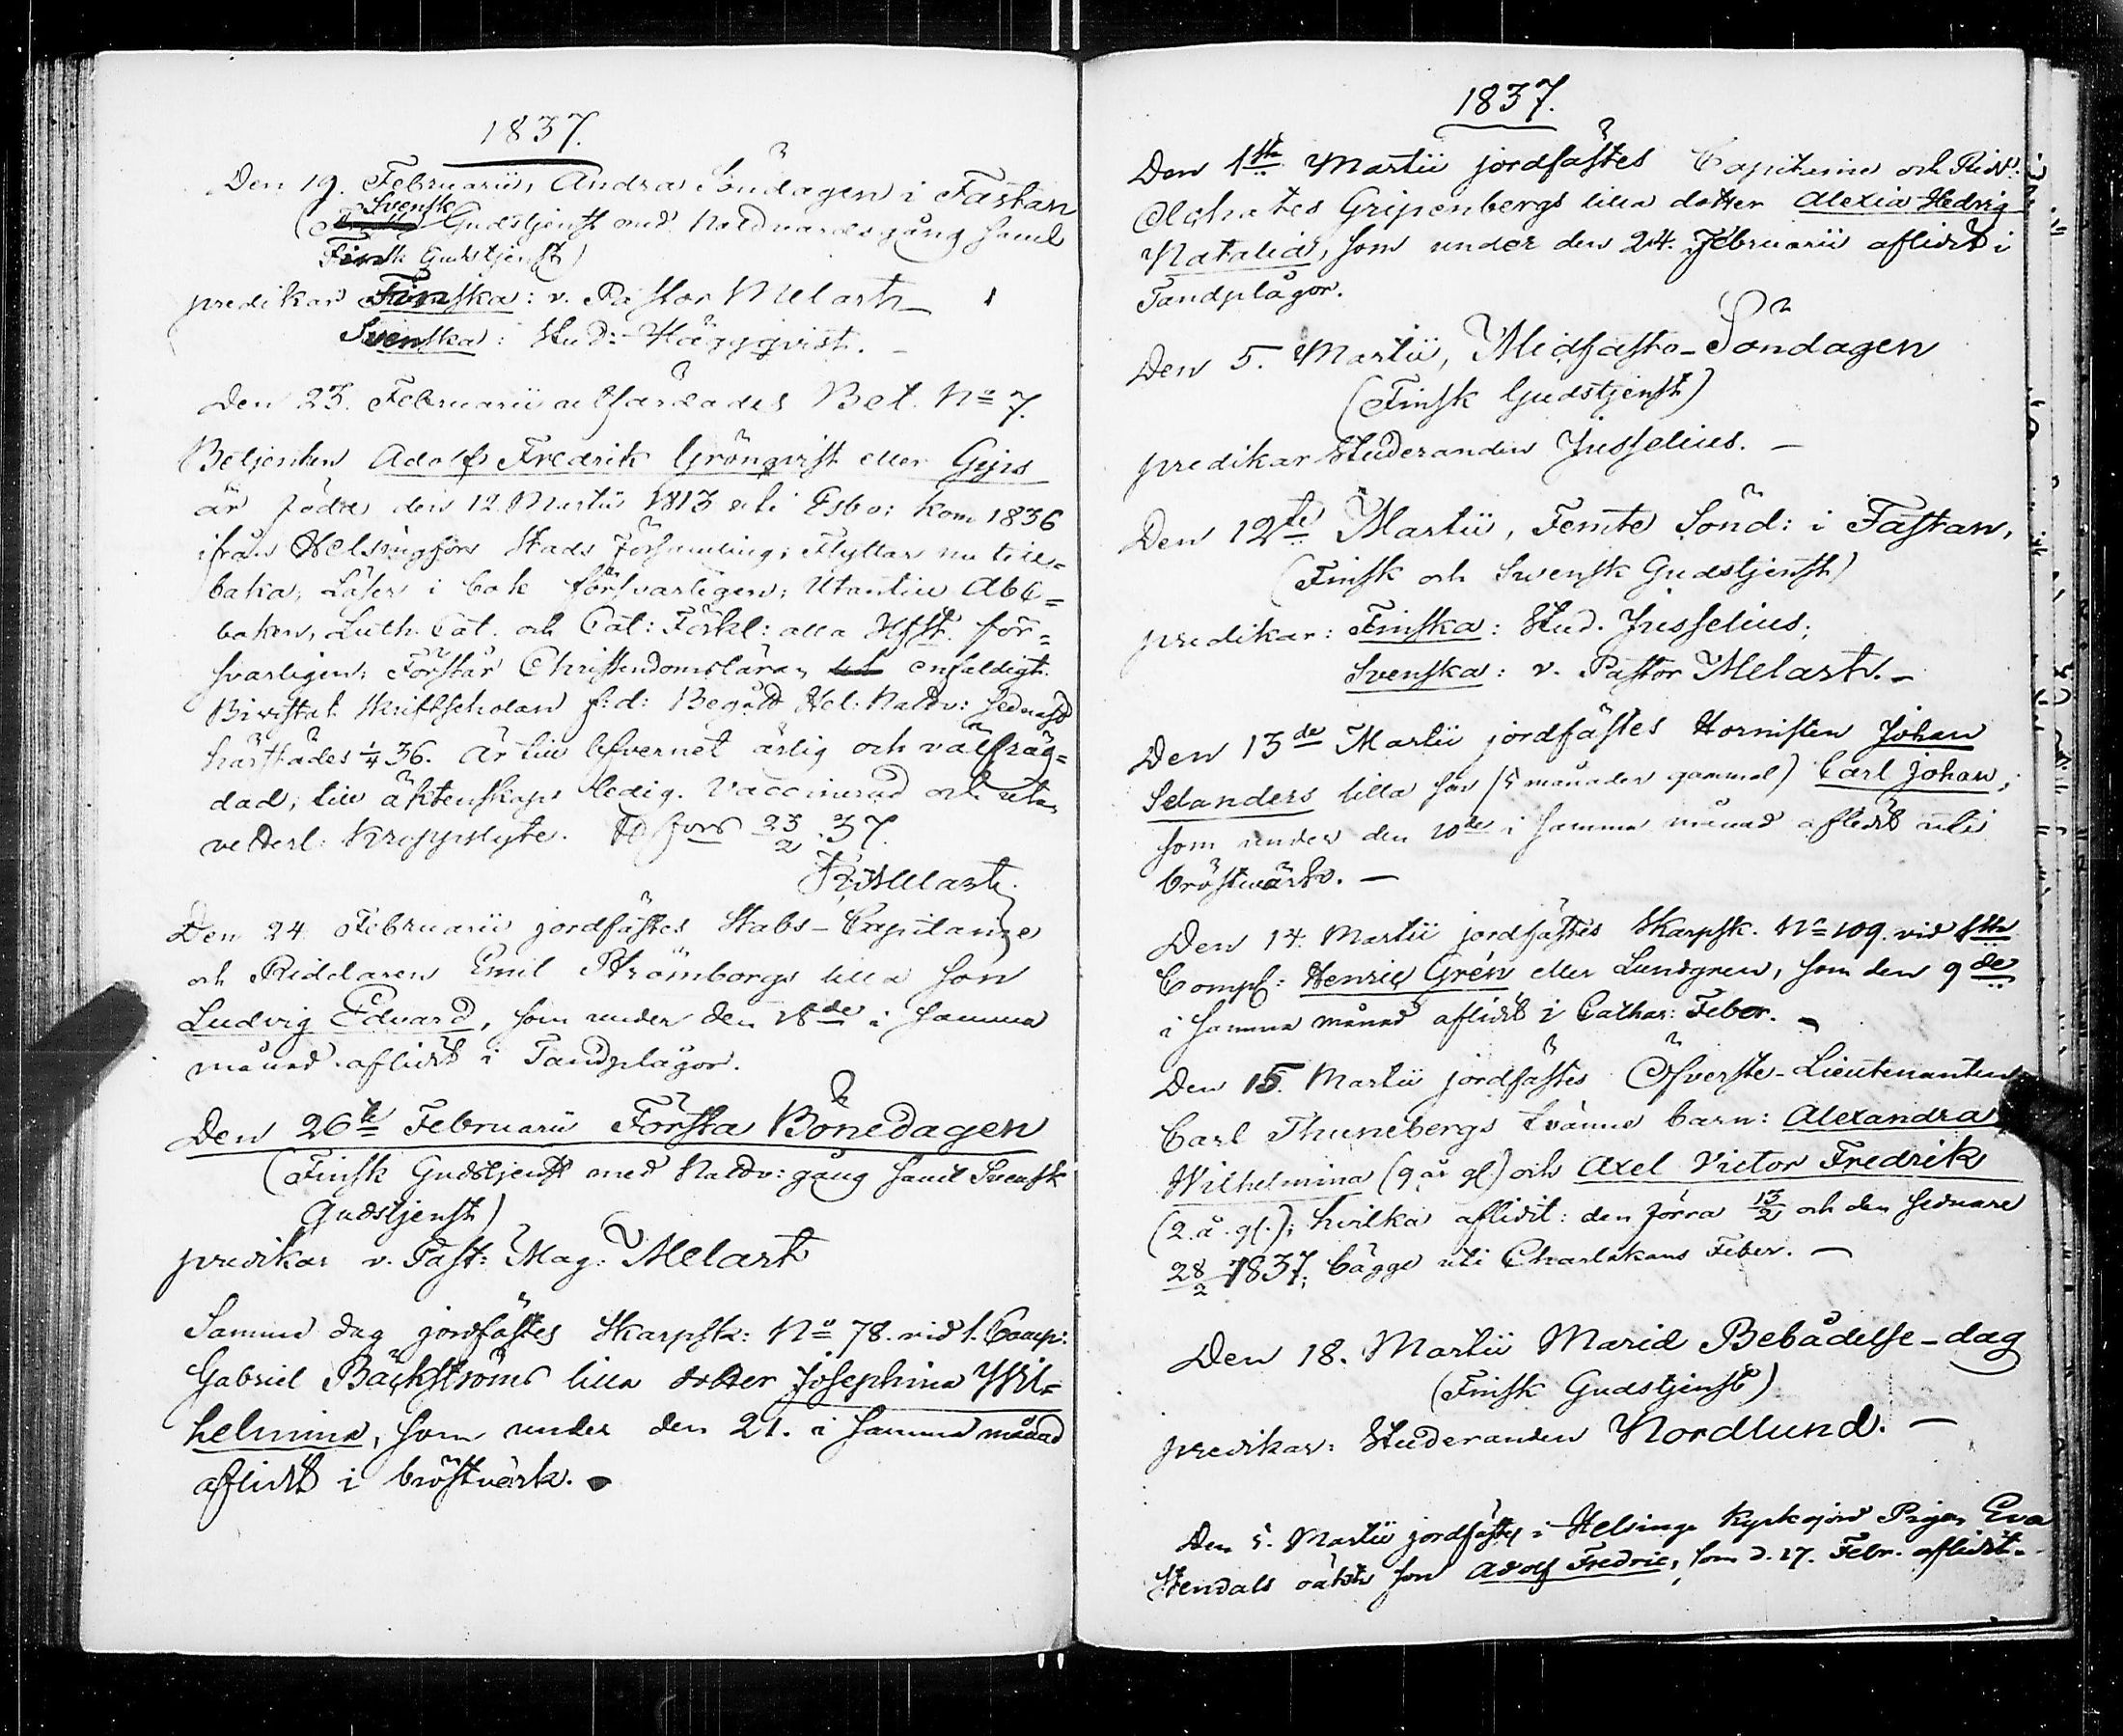 1837.
Den 19. Februarii, Andra Söndagen i Fastan
Svensk
( Gudstjenst med Nattvardsgång samt
Finsk Gudstjenst)
predikar Finska: v. Pastor Melart
Svenska: Stud: Häggqvist. –
Den 23. Februarii utfärdades Bet. No 7.
Betjenten Adolf Fredrik Grönqvist eller Gejis
är född den 12 Martii 1813 uti Esbo: kom 1836
ifrån Helsingfors Stads Församling; Flyttar nu till=
baka; Läser i bok försvarligen; Utantill Abc=
boken, Luth. Cat. och Cat: Förkl: alla Htst. för=
svarligen; Förstår Christendomslära enfaldigt.
Bivistat Skriftskolan f: d: Begått Hel: Nattv: sednast
härstädes 1/4 36. Är till lefvernet ärlig och välfräg=
dad; till äktenskap ledig. Vaccinerad och utan
vetterl: kroppslyte. H:fors 23/2 37.
Melart.
Den 24 Februarii jordfästes Stabs-Capitaine
och Riddaren Emil Strömborgs lilla son
Ludvig Edvard, som under den 18de i samma
månad aflidit i Tandplågor.
Den 26te Februarii Första Bönedagen
(Finsk Gudstjenst med Nattv: gång samt Svensk
Gudstjenst)
predikar v. Past: Mag: Melart
Samma dag jordfästes Skarpsk: No 78. vid 1. Comp:
Gabriel Bäckströms lilla dotter Josephina Wil=
helmina, som under den 21. i samma månad
aflidit i bröstvärk.
1837.
Den 1ste Martii jordfästes Capitaine och Ridd.
Achates Gripenbergs lilla dotter Alexia Hedvig
Natalia, som under den 24. Februarii aflidit i
Tandplågor.
Den 5. Martii, Midfasto-Söndagen
(Finsk Gudstjenst)
predikar Studeranden Jusselius. –
Den 12te Martii, Femte Sönd: i Fastan,
(Finsk och Svensk Gudstjenst)
predikar: Finska: Stud. Jusselius;
Svenska: v. Pastor Melart. –
Den 13de Martii jordfästes Hornisten Johan
Selanders lilla son (5 månader gammal) Carl Johan;
som under den 10de i samma månad aflidit uti
bröstvärk. –
Den 14. Martii jordfästes Skarpsk. No 109. vid
Comp: Henric Grén eller Lundgren, som den 9de
i samma månad aflidit i Cathar: Feber. –
Den 15. Martii jordfästes Öfverste-Lieutenanten
Carl Thunebergs tvänne barn: Alexandra
Wilhelmina (9 år gl.) och Axel Victor Fredrik
(2. å. gl.); hvilka aflidit: den förra 13/2 och den sednare
28/2 1837; bägge uti Charlakans Feber. –
Den 18. Martii Mariæ Bebådelse-dag
(Finsk Gudstjenst)
predikar: Studeranden Nordlund. –
Den 5. Martii jordfästes i Helsinge kyrkogård Pigan Eva
Stendals oäkta son Adolf Fredric, som d. 27. Febr. aflidit.